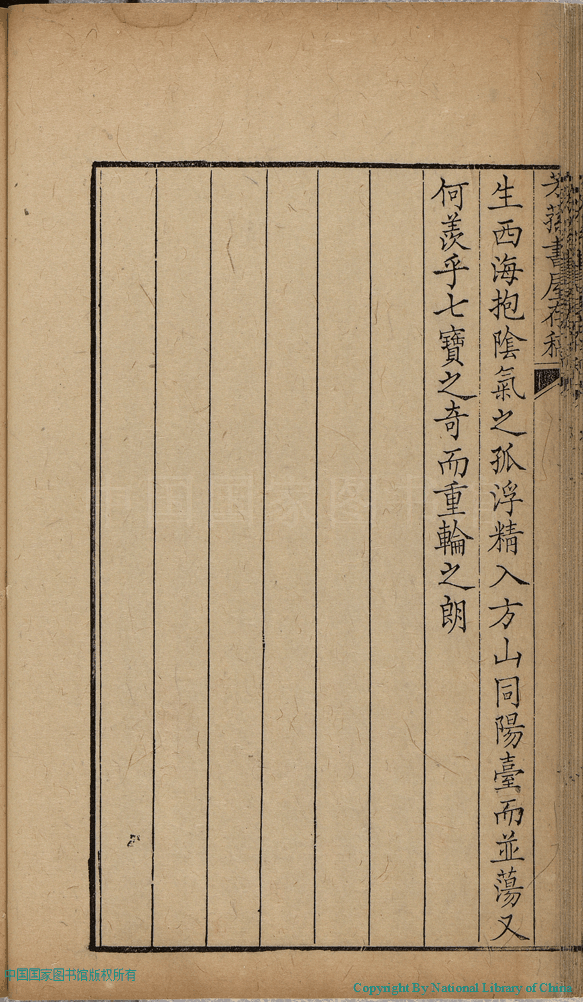 芳蓀書屋存稿
生西海抱陰氣之孤浮精入方山同陽臺而並蕩又
何羨乎七寶之奇而重輪之朗
中国国家图书
中国国家图书馆版权所有
Copyright By National Library of China